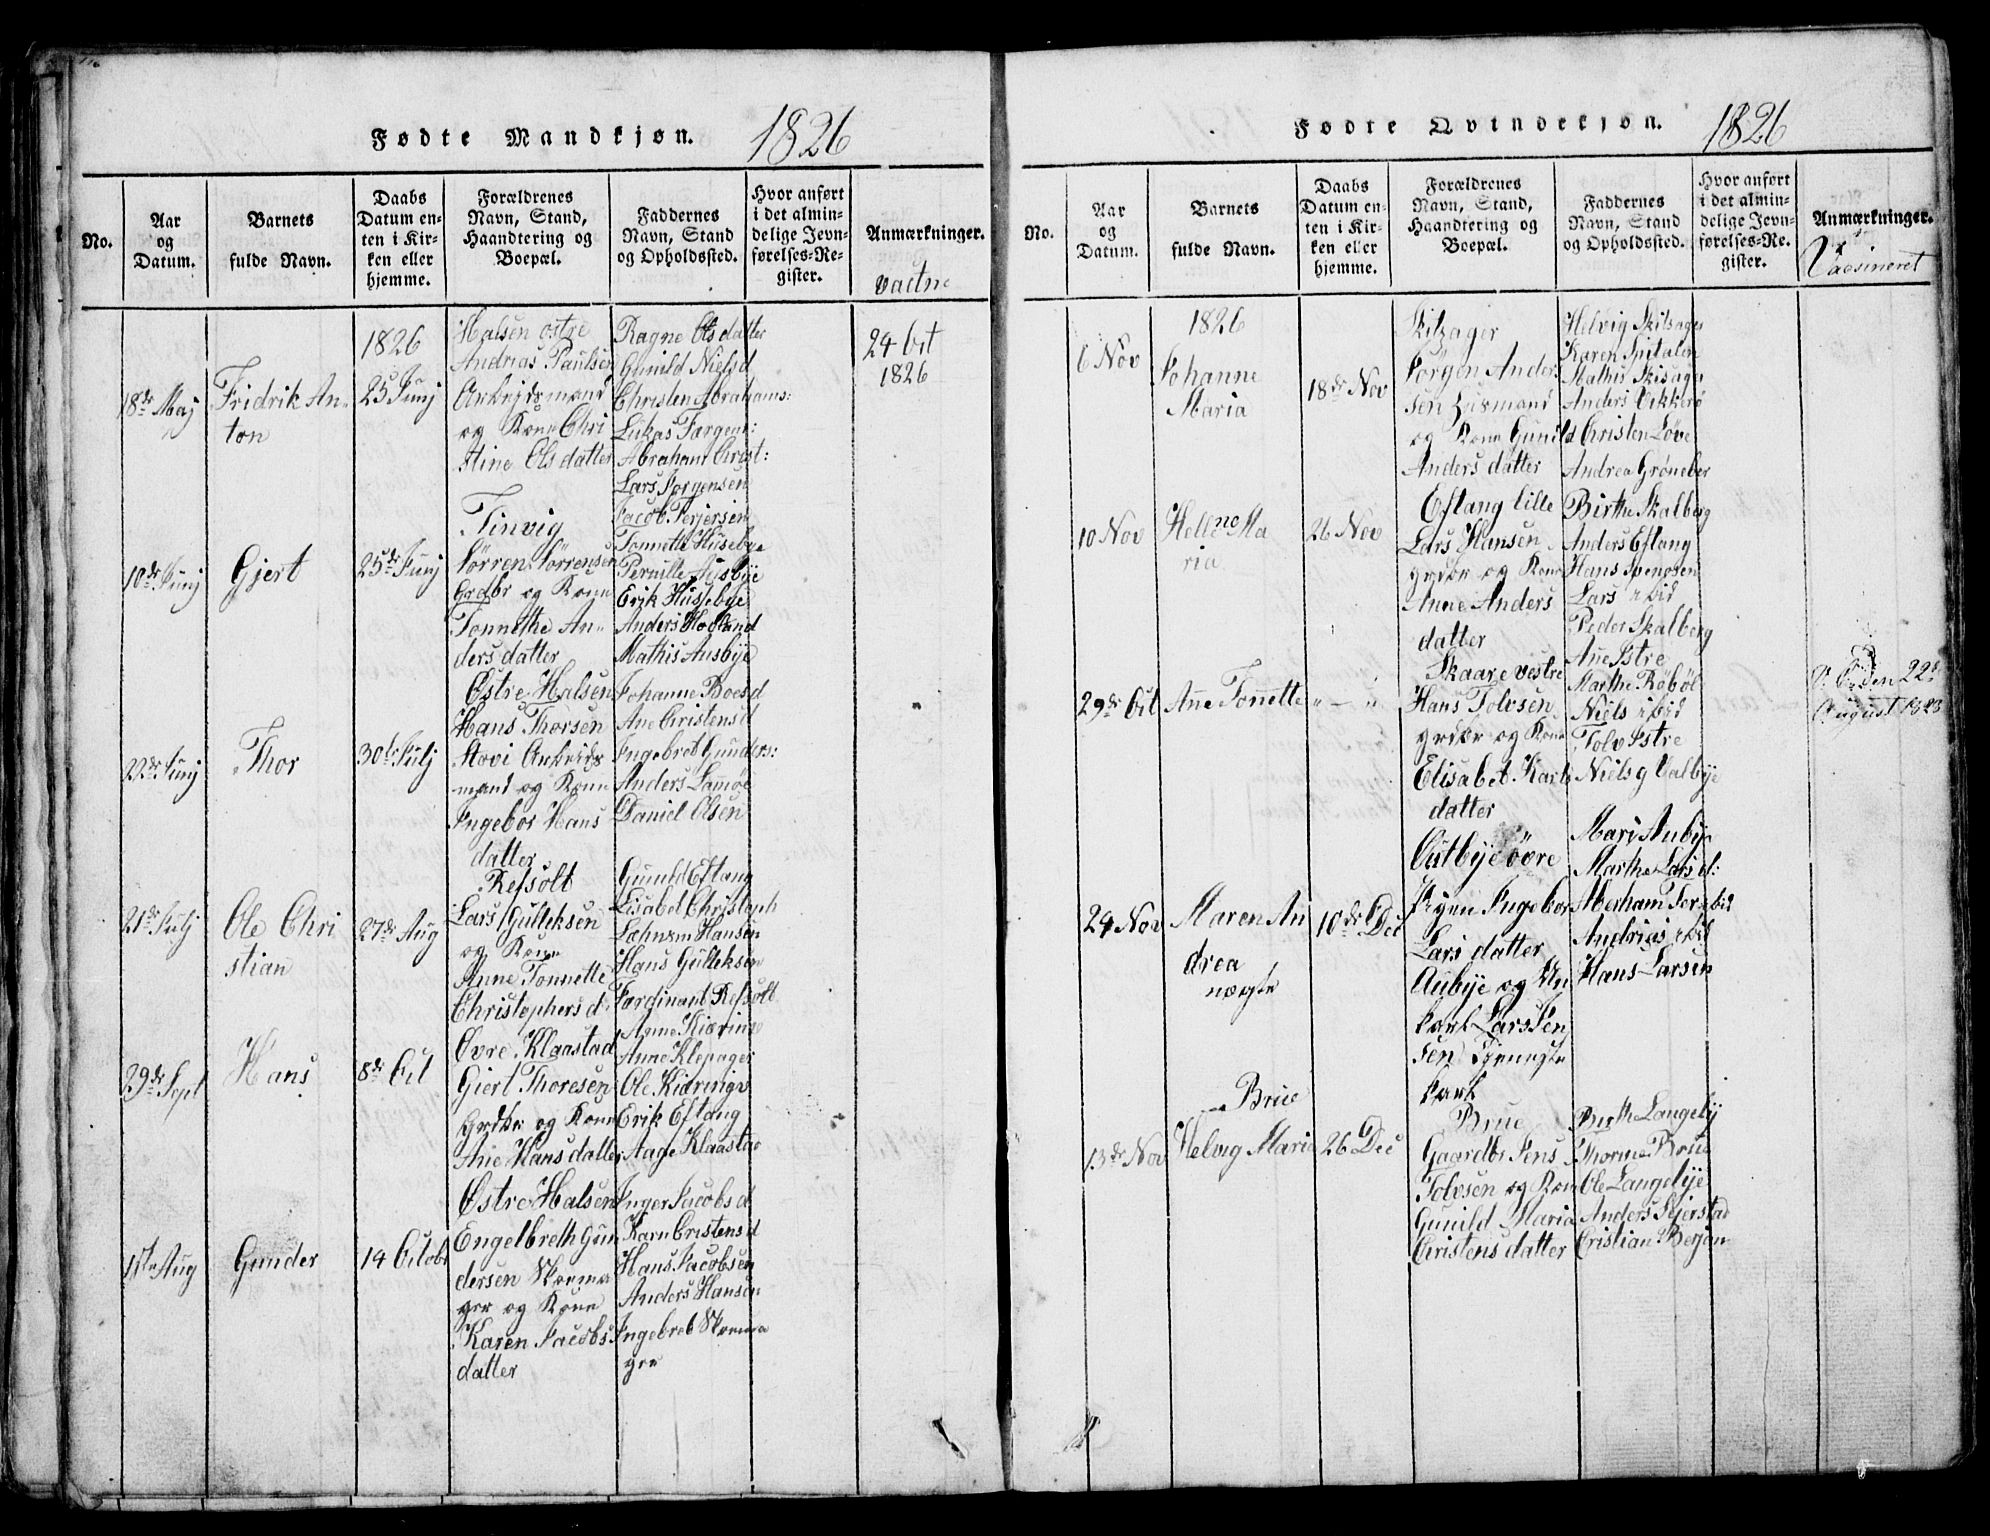 Fødte Mandkjøn. 1826
No.
Aar
og
Datum.
Barnets
fulde Navn.
Daabs
Datum en-
ten i Kir-
ken eller
hjemme.
Forældrenes
Navn, Stand,
Haandtering og
Boepæl.
Faddernes
Navn, Stand
og Opholdssted.
Hvor anført
i det almin-
delige Jevn-
førelses-Re-
gister.
Anmærkninger.
18de Maj
Fridrik An-
ton
1826
25 Junj
Halsen østre
Andrias Paulsen
Arbeidsmand
og Kone Chri
stine Olsdatter
Ragne Olsdatter
Gunild Nielsd
Christen Abrahams:
Lukas
Abraham Christ:
Lars Jørgensen
24 Oct
1826
10de Junj
Gjert
25de Junj
Tinvig
Sørren Sørrensen
Grdbr og Kone
Tonnethe An-
ders datter
Jacob Terjersen
Tonnette Husebye
Pernille Ausbye
Erik Hussebye
Anders Hotland
Mathis Ausbye
22de Junj
Thor
30te Julj
Østre Halsen
Hans Thorsen
Arbeids
mand og Kone
Ingebor Hans
datter
Johanne Boesd
Ane Cristensd
Ingebret Gunders:
Anders
Daniel Olsen
21de Julj
Ole Chri
stian
27de Aug
Refsolt
Lars Gulleksen
og Kone
Anne Tonnette
Christophersd:
Gunild Eftang
Lisabet Christoph
Hansen
Hans Gulleksen
Ferdinant Refsolt
29de Sept
Hans
8de Oct
Øvre Klaastad
Giert Thoresen
Grdbr og Kone
Ane Hansdatter
Anne Kiæringe
Anne Klepager
Ole Kiæringe
Erik Eftang
Aage Klaastad
1ste Aug
Gunder
14 Octob
Østre Halsen
Engelbreth Gun
dersen Skoma
ger og Kone
Karen Jacobs
datter
Inger Jacobsd
Karn Cristensd
Hans Jacobsen
Anders Hansen
Ingebret Skoma
ger
Fødte Qvindekjøn. 1826
No.
Aar
og
Datum.
Barnets
fulde Navn.
Daabs
Datum en-
ten i Kir-
ken eller
hjemme.
Forældrenes
Navn, Stand,
Haandtering og
Boepæl.
Faddernes
Navn, Stand
og Opholdssted.
Hvor anført
i det almin-
delige Jevn-
førelses-Re-
gister.
Anmærkninger.
Vacsineret
6 Nov
1826
Johanne
Maria
18de Nov
Skilsager
Jørgen Ander:
sen Husmand
og Kone Gunild
Anders datter
Helvig Skilsager
Karen Spitalen
Mathis Skisager
Anders Vikkerø
Cristen Løve
Andrea Grøneber
10 Nov
Hellene Ma
ria
26 Nov
Eftang lille
Lars Hansen
grdbr og Kone
Anne Anders
datter
Birthe Skalberg
Anders Eftang
Hans
Lars ibid
Peder Skalberg
29de Oct
Ane Tonette
" — "
Skaare vestre
Hans Tolvsen
grdbr og Kone
Elisabet Karls
datter
Ane Istre
Marthe Røbøl
Niels ibid
Tolv Istre
Niels g Valbye
den 22de
August 1828
24 Nov
Maren An
drea
uægte
10de Dec
Østbye øvre
Pigen Ingebor
Lars datter
Aubye og Un
karl Lars Jen
sen
karl
Mari Aubye
Marthe Larsd:
Aberham Tor ibid
Andrias ibid
Hans Larsen
Brue
13de Nov
Helvig Marie
26 Dec
Brue
Gaardbr Jens
Tolvsen og Kone
Gunild Maria
Cristens datter
Birthe Langebÿ
Thorine Brue
Ole Langebye
Anders Sejerstad
Cristian Berjan